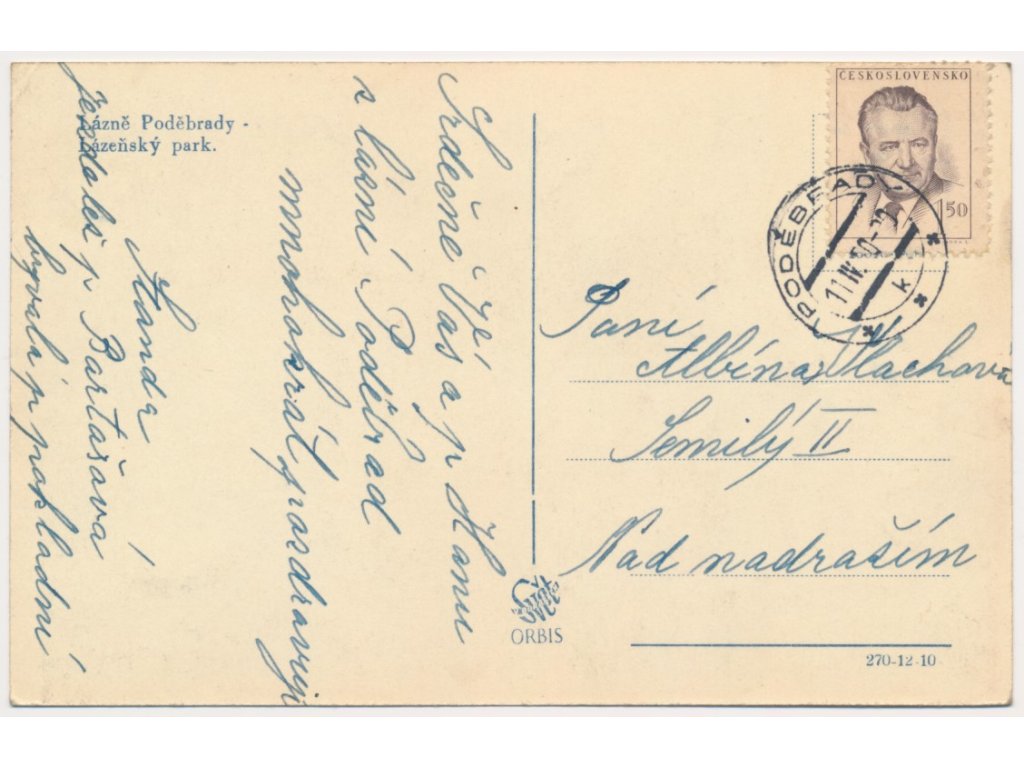 Lázně Poděbrady -
Lázeňský park.
Srdečně Vás a p. Hanu
z lázní Poděbrad
mnohokrát pozdravuji
Standa
Bartašová
bývalá p. pokladní
ČESKOSLOVENSKO
1.50
PODĚBRADY
11.IV.50
k
Paní
Albína Vlachová
Semilý II
Nad nadražím
ORBIS
270-12-10